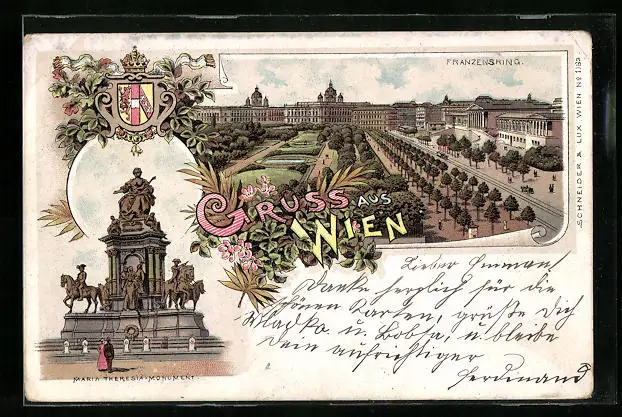 FRANZENSRING.
GRUSS AUS
WIEN
SCHNEIDER & LUX WIEN No 118a
MARIA THERESIA-MONUMENT.
Lieber
Danke herzlich für die
schönen Karten, grüße Dich
u. u. bleibe
Dein aufrichtiger
Ferdinand